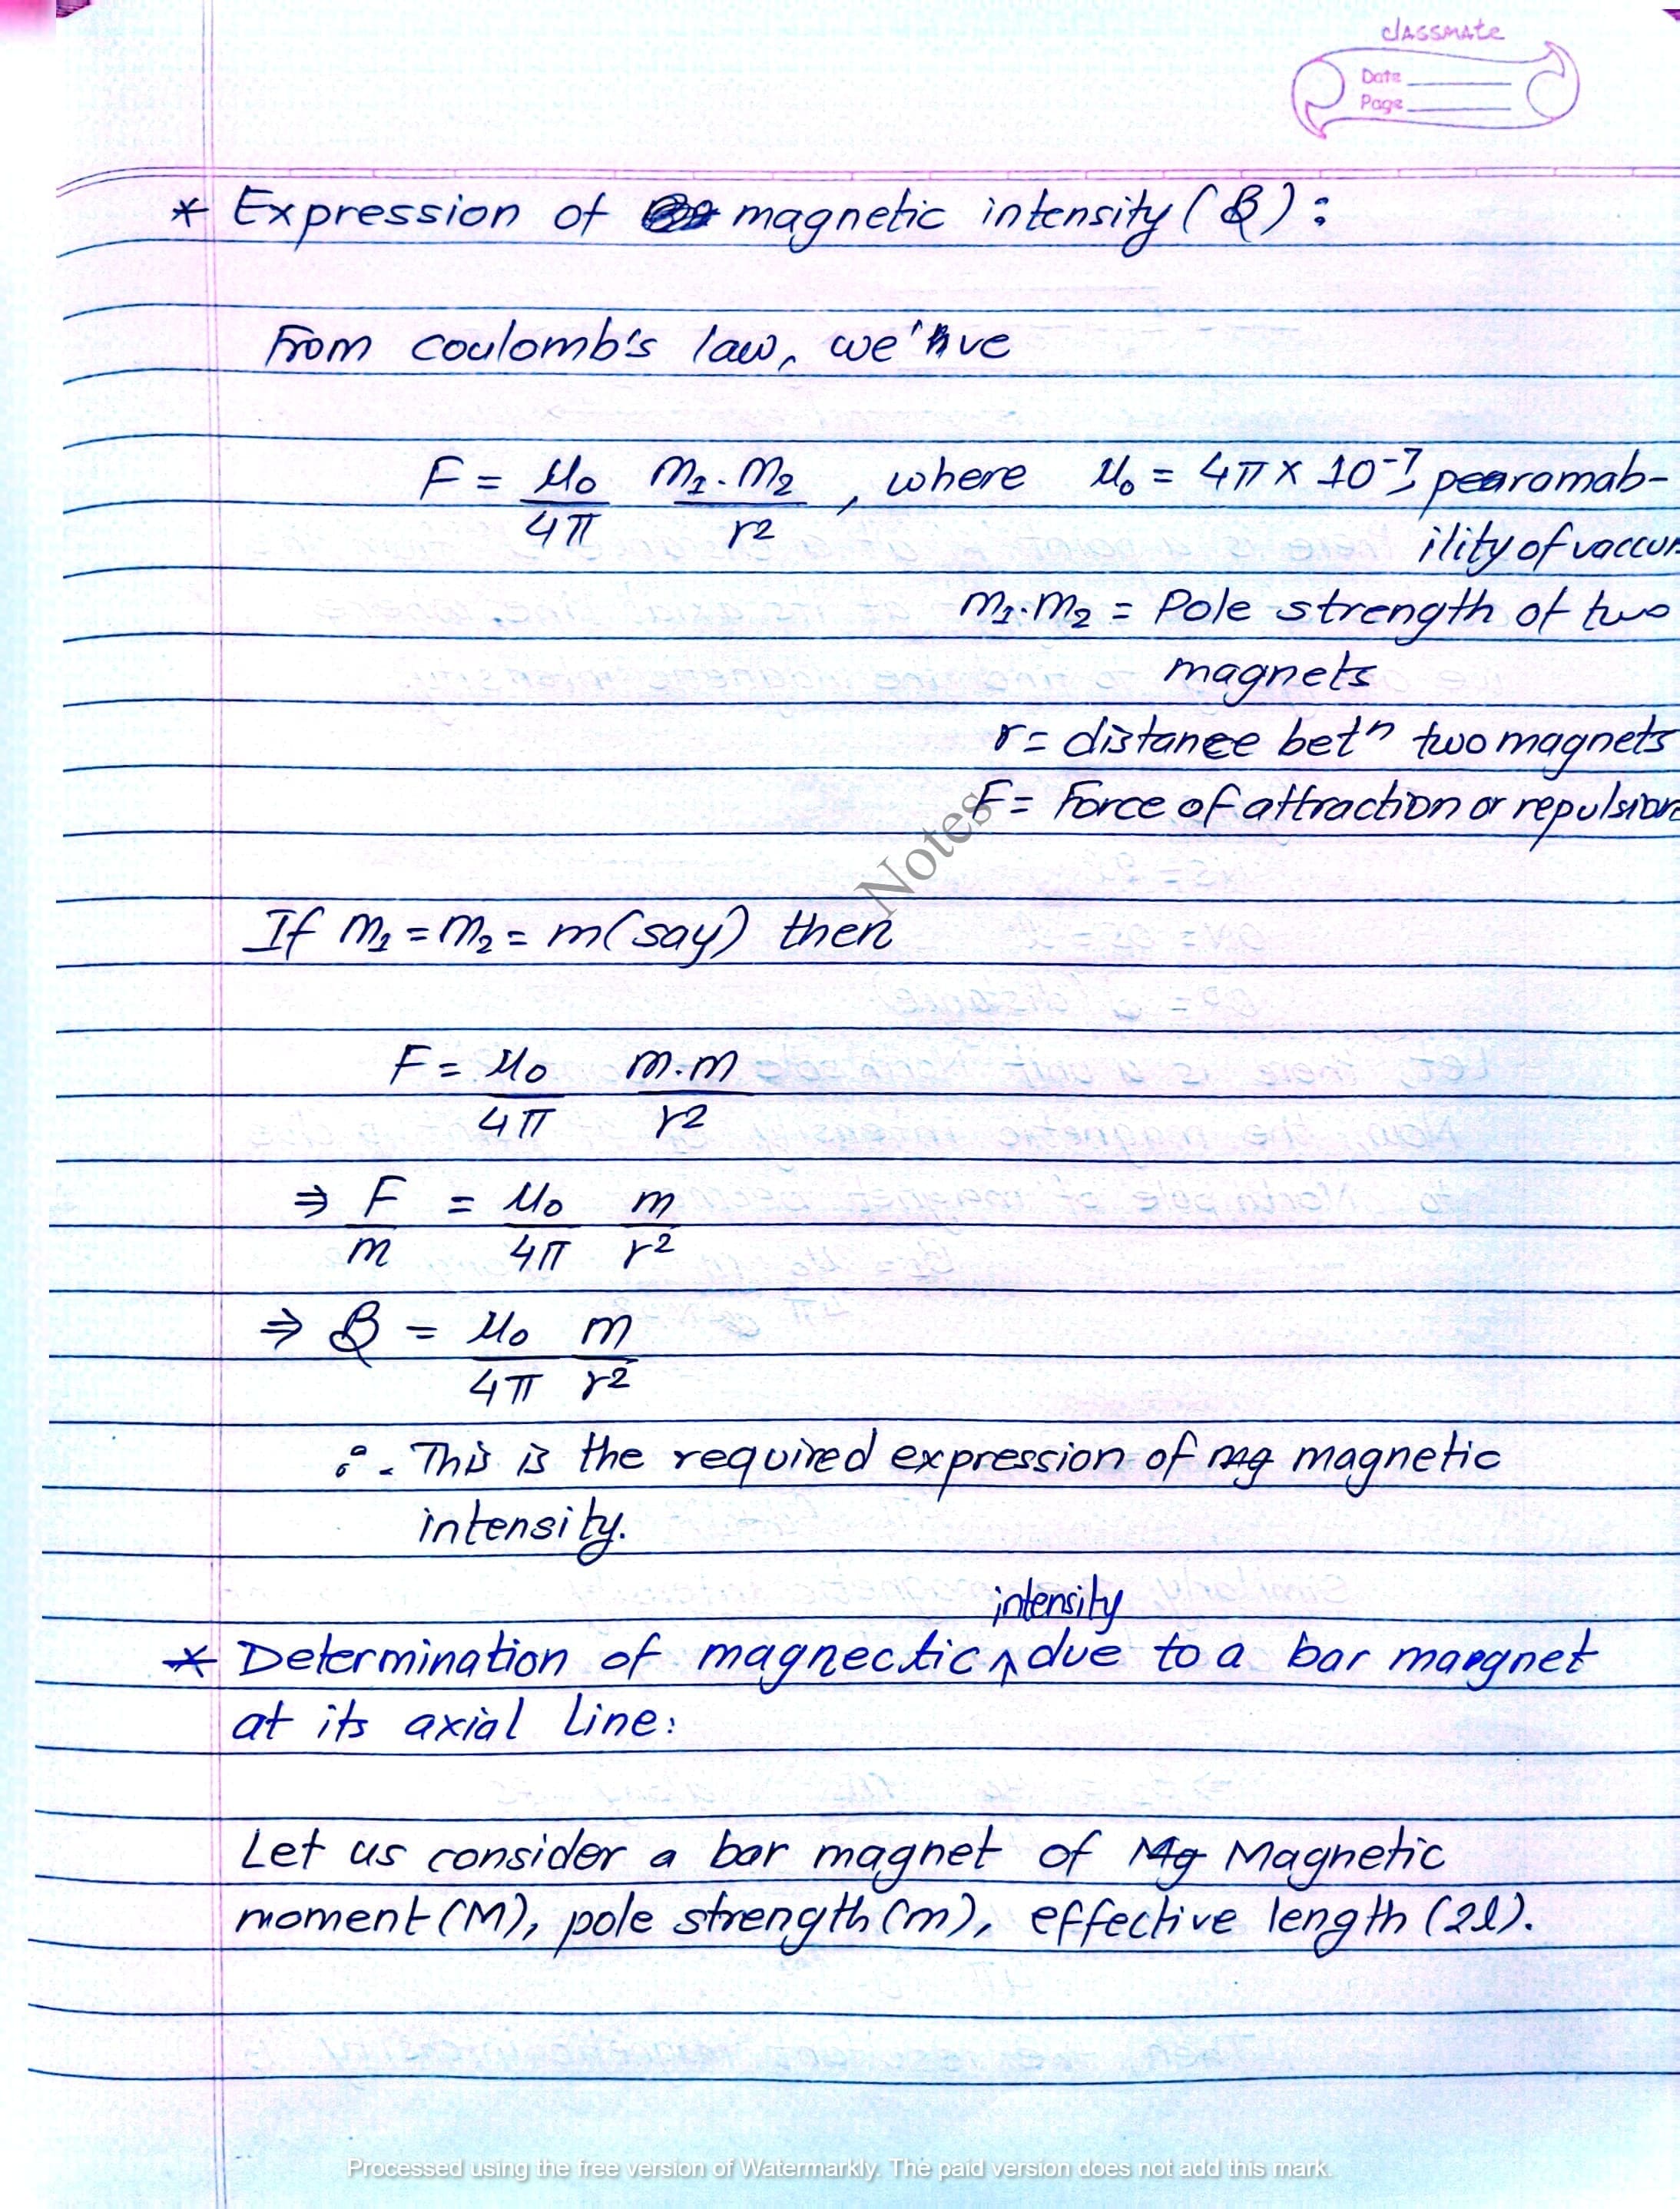 classmate
Date
Page
* Expression of magnetic intensity (B):
From coulomb's law, we've
F = μ₀/4π m₁.m₂/r², where μ₀ = 4π × 10⁻⁷, pearamab-
ility of vaccu
m₁.m₂ = Pole strength of two
magnets
r = distance betⁿ two magnets
F = Force of attraction or repulsion
Notes
If m₁ = m₂ = m (say) then
F = μ₀/4π m.m/r²
⇒ F/m = μ₀/4π m/r²
⇒ B = μ₀/4π m/r²
∴ This is the required expression of magnetic
intensity.
intensity
* Determination of magnectic ^ due to a bar mangnet
at its axial line:
Let us consider a bar magnet of Magnetic
moment (M), pole strength (m), effective length (2l).
Processed using the free version of Watermarkly. The paid version does not add this mark.